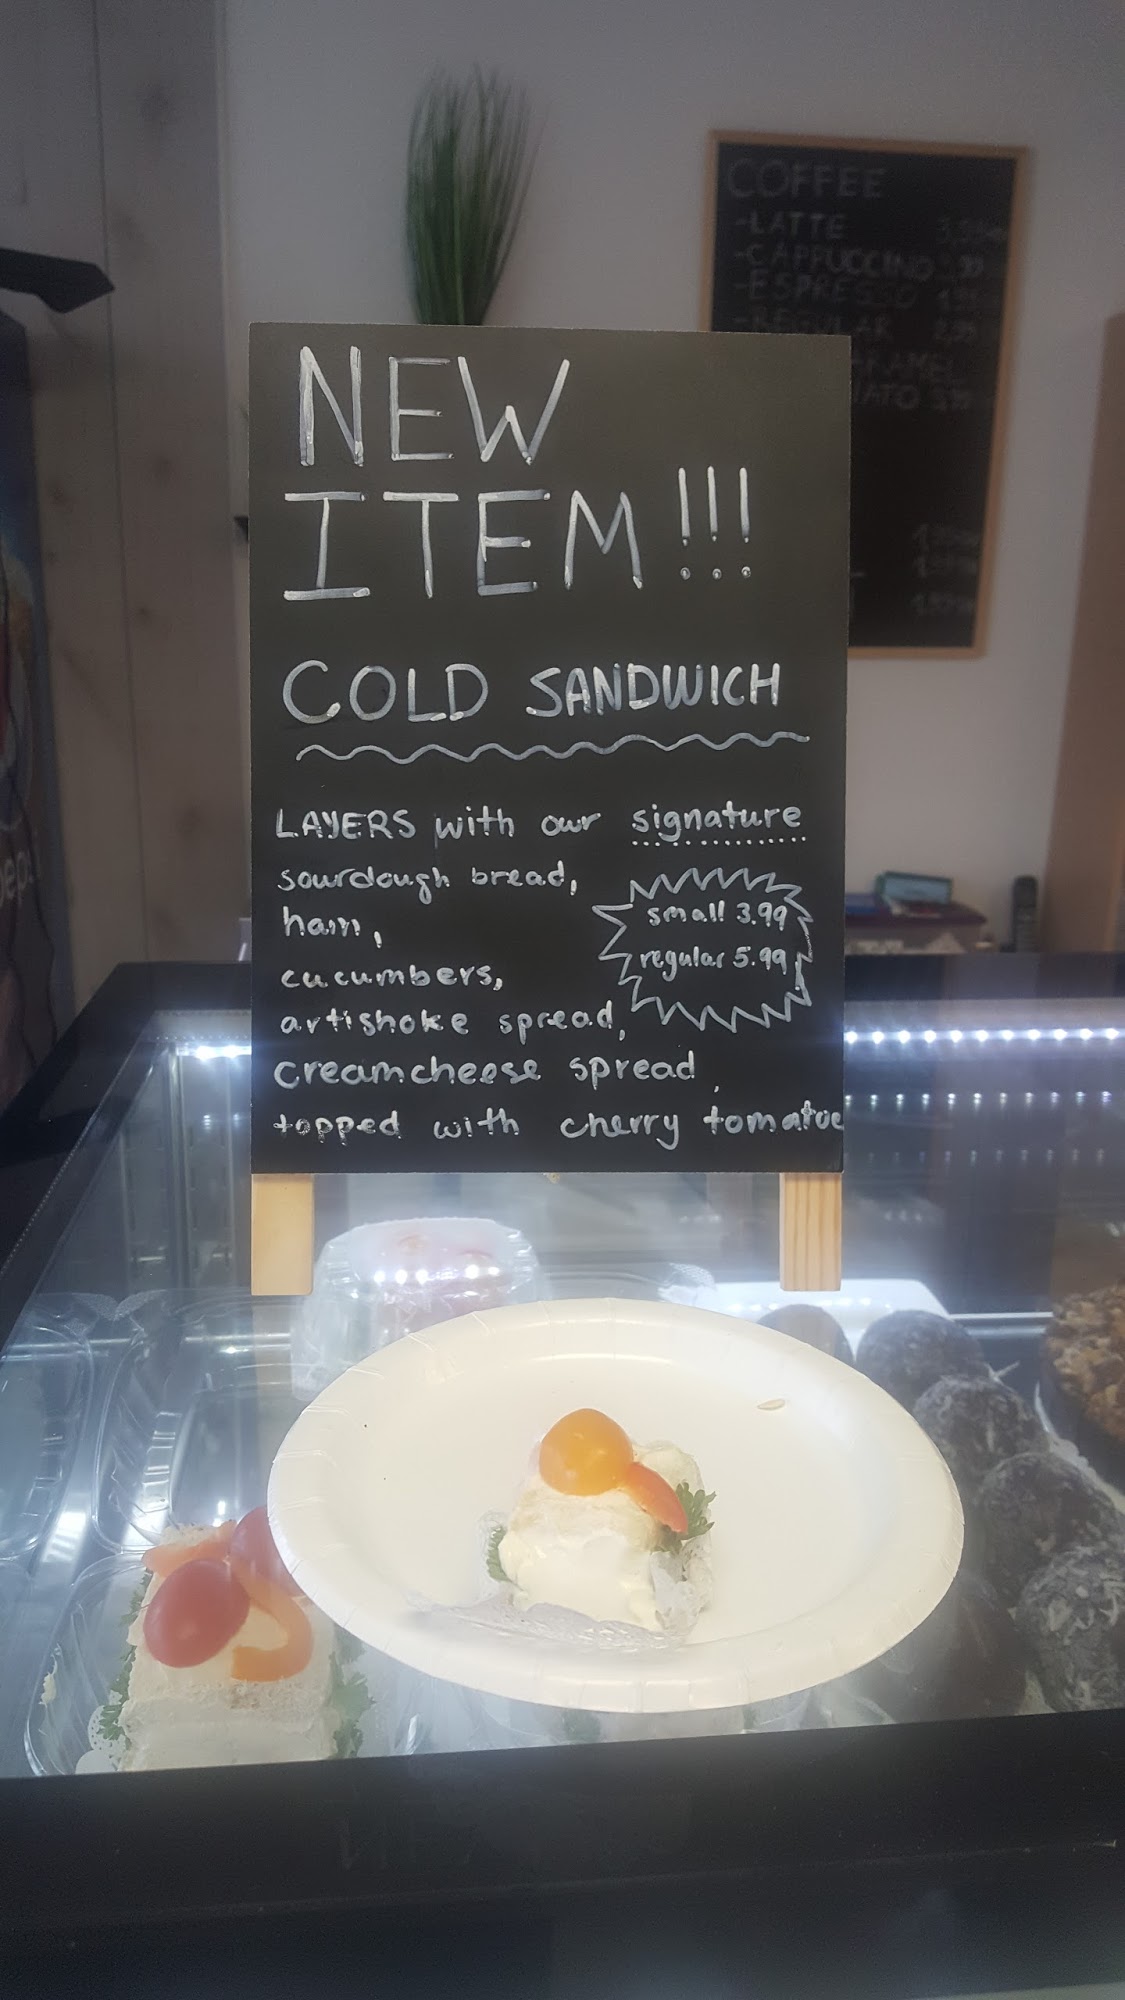 COFFEE
-LATTE
-CAPPUCCINO
-ESPRESSO
-REGULAR
NEW
ITEM!!!
COLD SANDWICH
LAYERS with our signature
sourdough bread,
ham,
cucumbers,
artishoke spread,
creamcheese spread,
topped with cherry tomatoe
small 3.99
regular 5.99